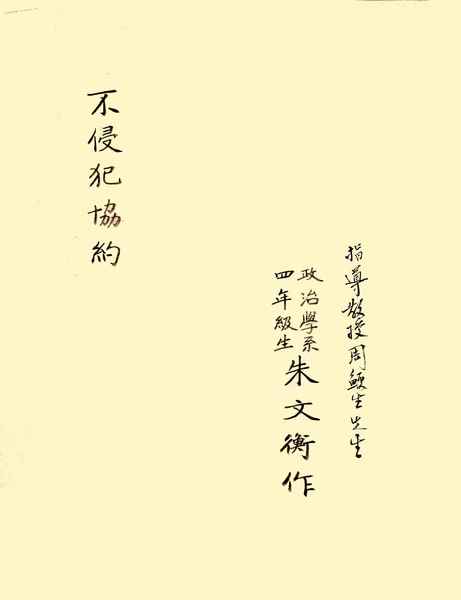 指導教授周鯁生先生
政治學系
四年級生
朱文衡作
不侵犯協約